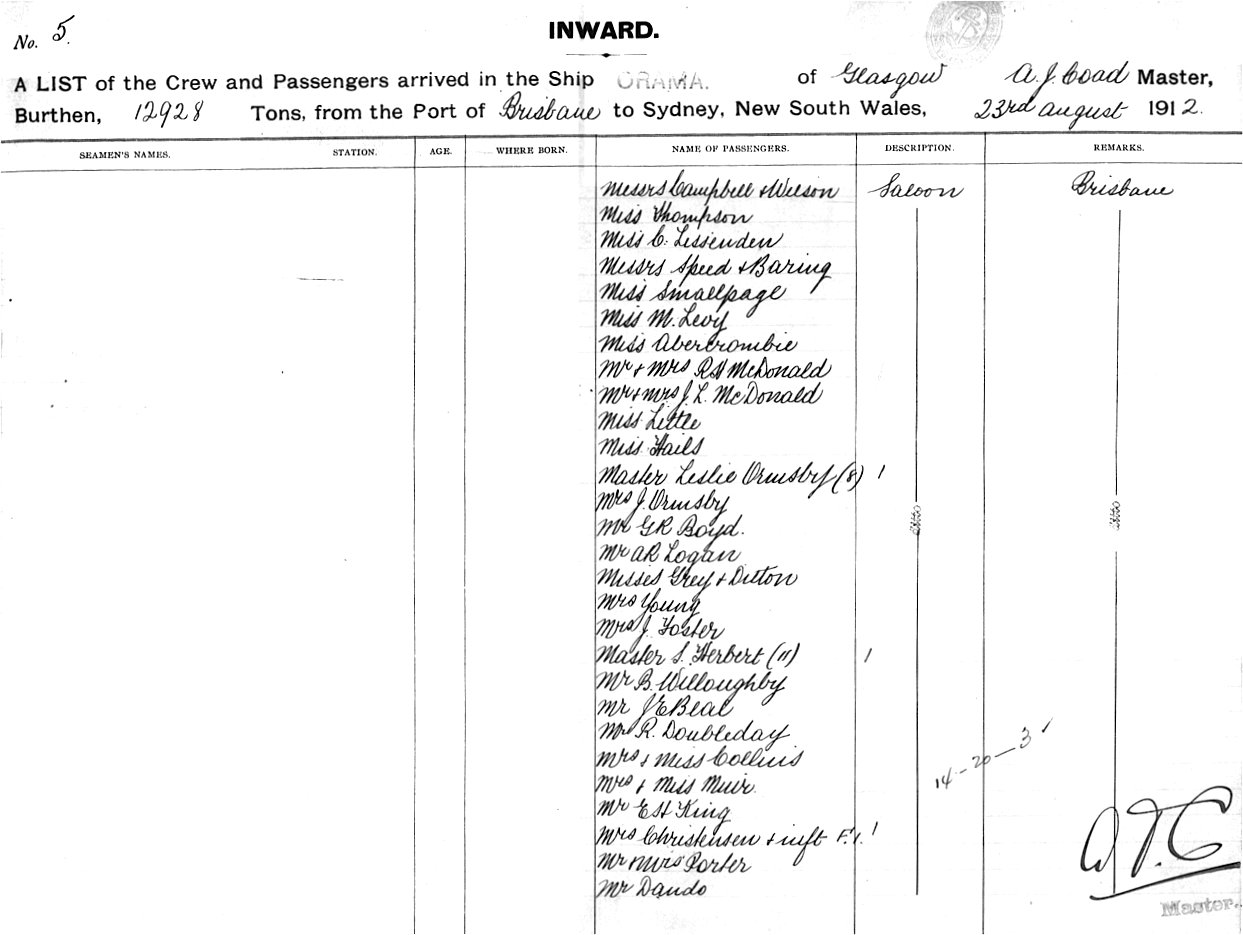 No. 5.
INWARD.
A LIST of the Crew and Passengers arrived in the Ship ORAMA. of Glasgow A. J. Coad Master,
Burthen, 12928 Tons, from the Port of Brisbane to Sydney, New South Wales, 23rd august 1912.
SEAMEN'S NAMES. STATION. AGE. WHERE BORN. NAME OF PASSENGERS. DESCRIPTION. REMARKS.
Messrs Campbell & Wilson Saloon Brisbane
Miss Thompson
Miss C. Lissenden
Messrs Speed & Baring
Miss Smallpage
Miss M. Levy
Miss Abercrombie
Mr & Mrs RH McDonald
Mr & Mrs J. L. McDonald
Miss Little
Miss Hails
Master Leslie Ormsby (8) 1
Mrs J. Ormsby
Mr GR Boyd.
Mr AR Logan
Misses Grey & Dutton
Mrs Young
Mrs J. Foster
Master S. Herbert (11) 1
Mr B. Willoughby
Mr J E Beal
R. Doubleday
Mrs & Miss Collins
Mrs & Miss Muir
14-20-3
Mr EH King
Mrs Christensen & inft F. 1. 1
Mr & Mrs Porter
Mr Dando
Master.